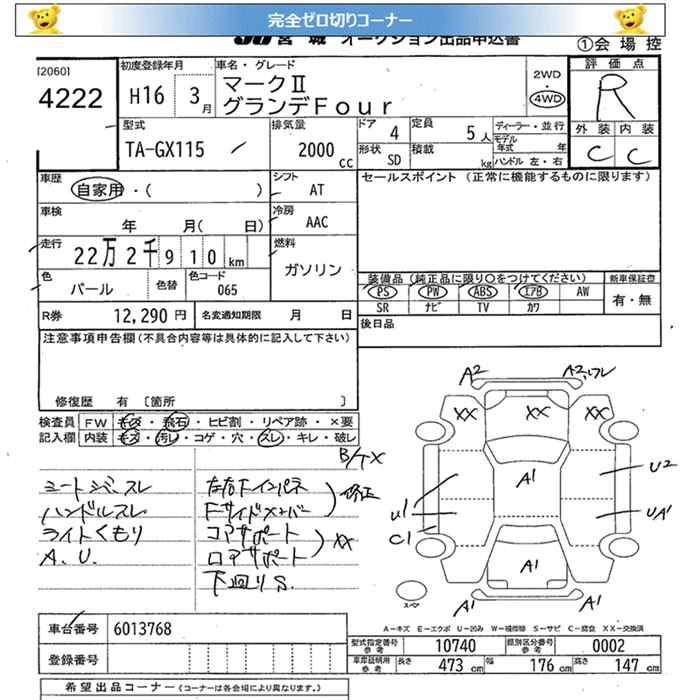 完全ゼロ切りコーナー
JU 宮城 オークション出品申込書
①会場控
[2060]
4222
初度登録年月
H16 3月
車名・グレード
マークⅡ
グランデFour
2WD
・
4WD
評価点
R
外装 内装
C C
型式
TA-GX115
排気量
2000 cc
ドア 4
定員 5人
形状 SD
積載 kg
ディーラー・並行
モデル年式 年
ハンドル 左・右
車歴
自家用・( )
シフト AT
セールスポイント (正常に機能するものに限ります)
車検
年 月( 日)
冷房 AAC
走行
22万2千910km
燃料
ガソリン
色
パール
色替
色コード
065
装備品 (純正品に限り○をつけてください)
新車保証書
PS PW ABS エアB AW
SR ナビ TV カワ
有・無
R券 12,290 円
名変通知期限 月 日
後日品
注意事項申告欄 (不具合内容等は具体的に記入して下さい)
修復歴 有 〔箇所 〕
検査員 FW キズ・飛石・ヒビ割・リペア跡・×要
記入欄 内装 キズ・汚レ・コゲ・穴・スレ・キレ・破レ
シートシワスレ
ハンドルスレ
ライトくもり
A.U.
左右Fインパネ
Fサイドメンバー
修正
コアサポート
ロアサポート
XX
下回りS.
A2
A2,ワレ
XX XX XX
A1
U1
C1
U2
UA1
A1
A1 A1
スペア
A－キズ E－エクボ U－凹み W－補修跡 S－サビ C－腐食 XX－交換済
車台番号 6013768
登録番号
型式指定番号
参考
10740
類別区分番号
参考
0002
車庫証明用
参考
長さ 473 cm
幅 176 cm
高さ 147 cm
希望出品コーナー (コーナーは各会場により異なります。)